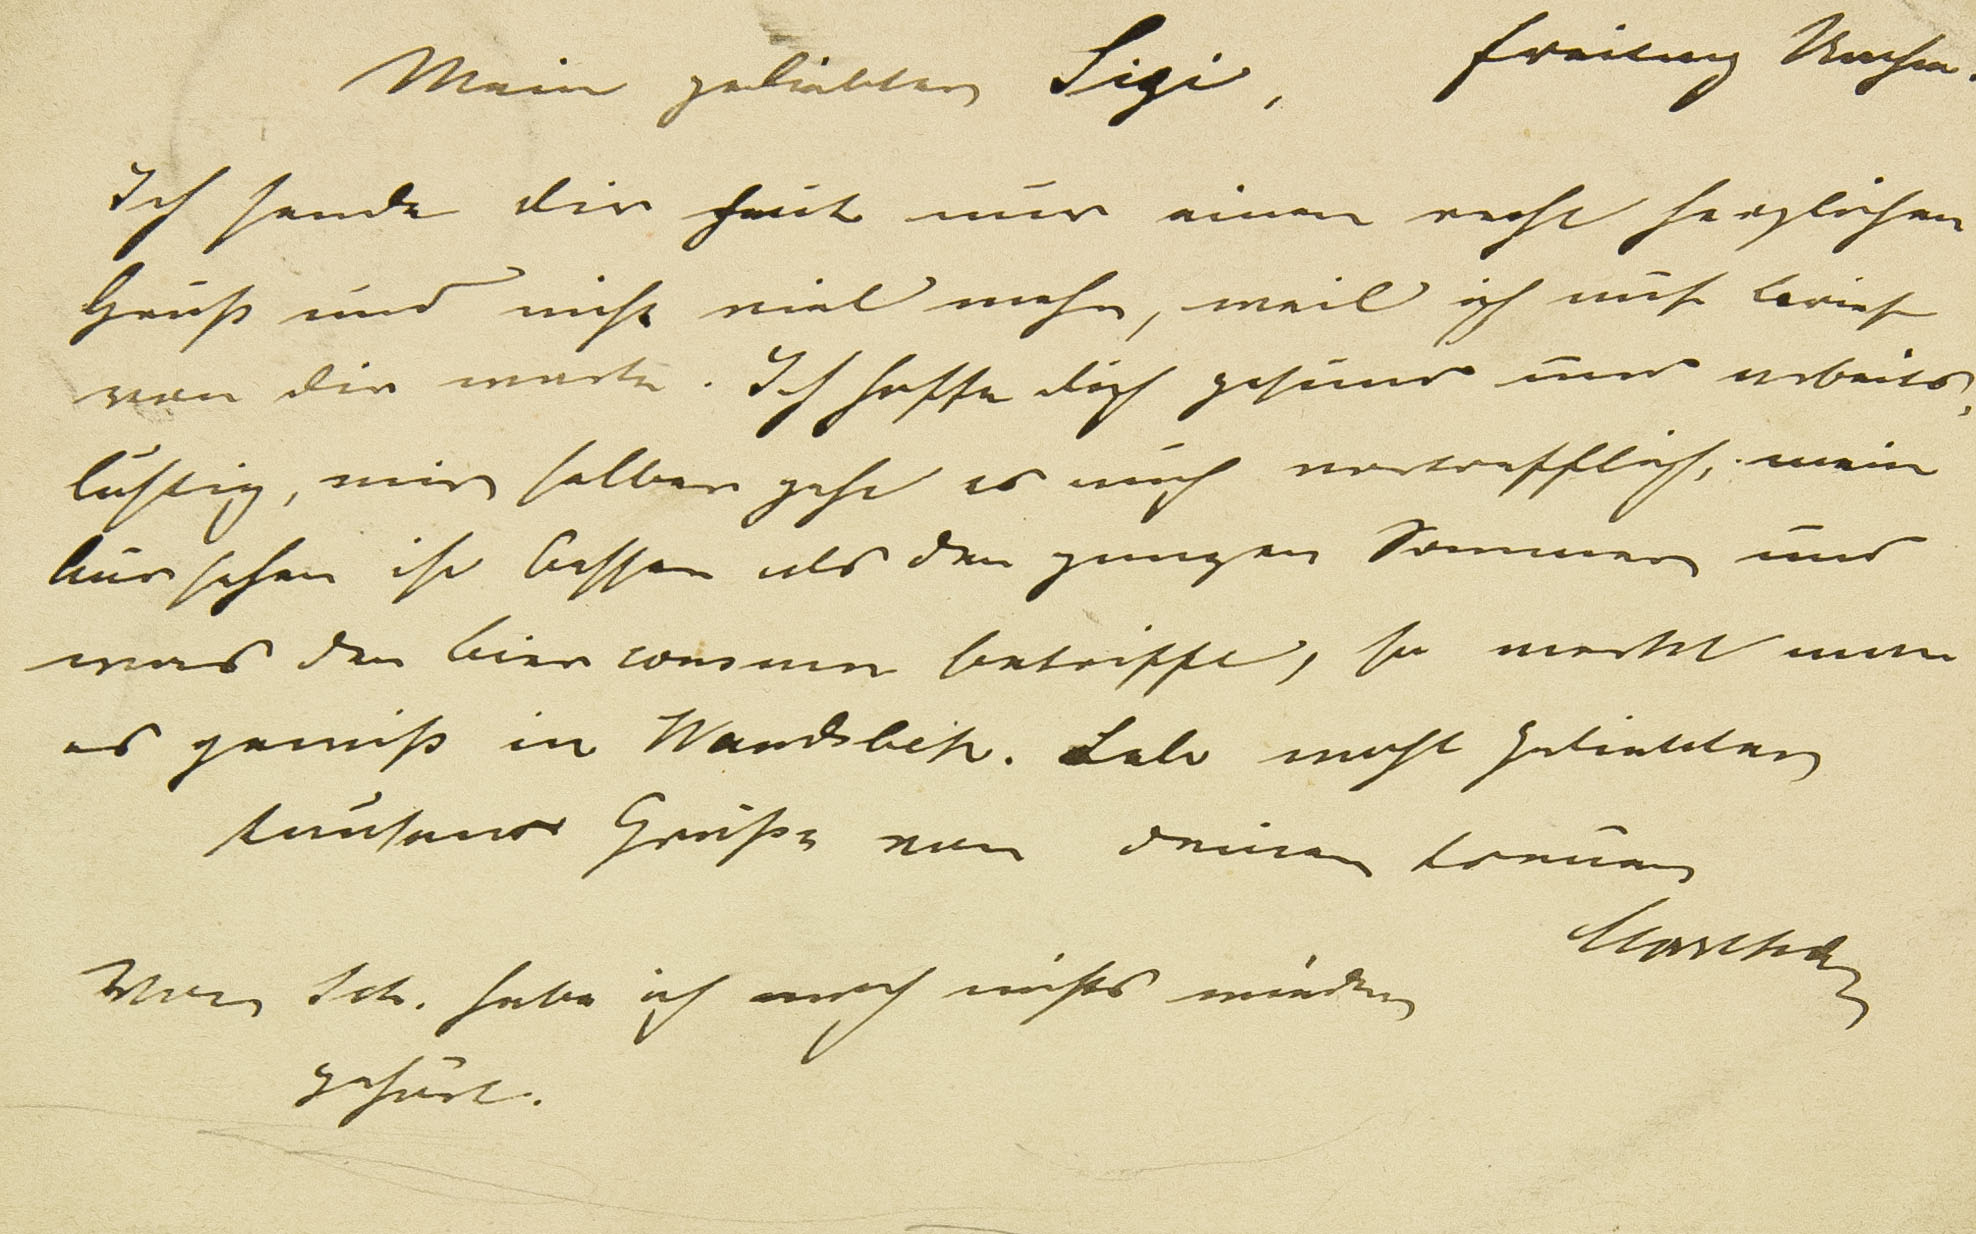 Mein geliebter Sigi, freitag Nachm.
Ich sende dir heut nur einen recht herzlichen
Gruß und nicht viel mehr, weil ich auf brief
von dir warte. Ich hoffe dich gesund und arbeits,
lustig, mir selber geht es auch vortrefflich, mein
aussehen ist besser als den ganzen Sommer und
was den bierconsum betrifft, so merkt man
es gewiß in Wandsbek. Leb wohl geliebter
tausend Grüße von deiner treuen
Martha
Von Sch. habe ich noch nichts wieder
gehört.